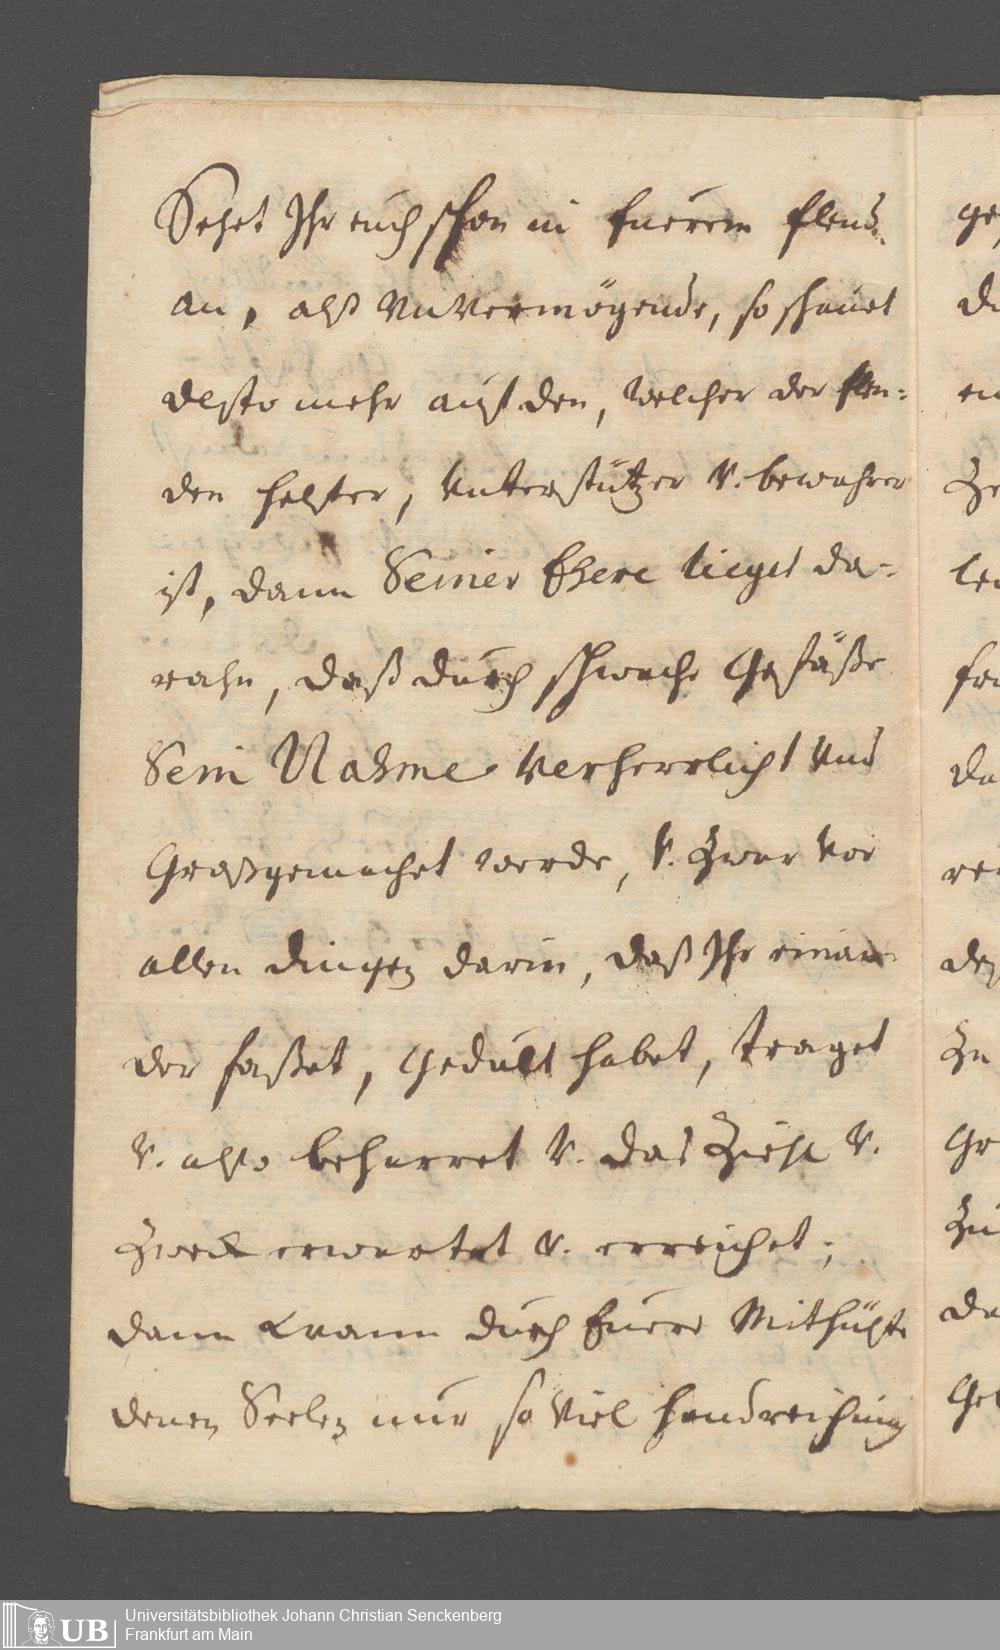 Sehet Ihr euch schon in Euerem Elend
an, alß Unvermögende, so schauet
desto mehr auf den, welcher der Elen=
den helffer, Unterstützer V. bewahrer
ist, dann Seiner Ehere lieget da=
rahn, daß durch schwache Gefäße
Sein Nahme Verherrlicht Und
Großgemachet werde, V. Zwar Vor
allen dingen darin, daß Ihr einan
der faßet, Gedult habet, traget
V. also beharret V. das Ziehl V.
Zweck erwartet V. erreichet;
dann Kann durch Euere Mithülfe
denen Seelen nur so Viel handreichung
ge
da
en
Ze
le
fr
da
re
de
Zu
Gr
Zu
da
Ge
UB
Universitätsbibliothek Johann Christian Senckenberg
Frankfurt am Main